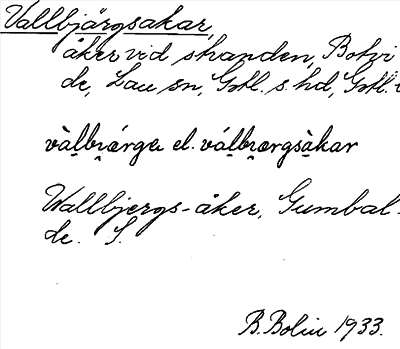 Vallbjärgsakar,
åker vid stranden, Botvi
de, Lau sn, Gotl. s. hd, Gotl.
vàlbɪærga el. válbɪærgsàkar
Wallbjergs-åker, Gumbal-
de. S.
B. Bolin 1933.